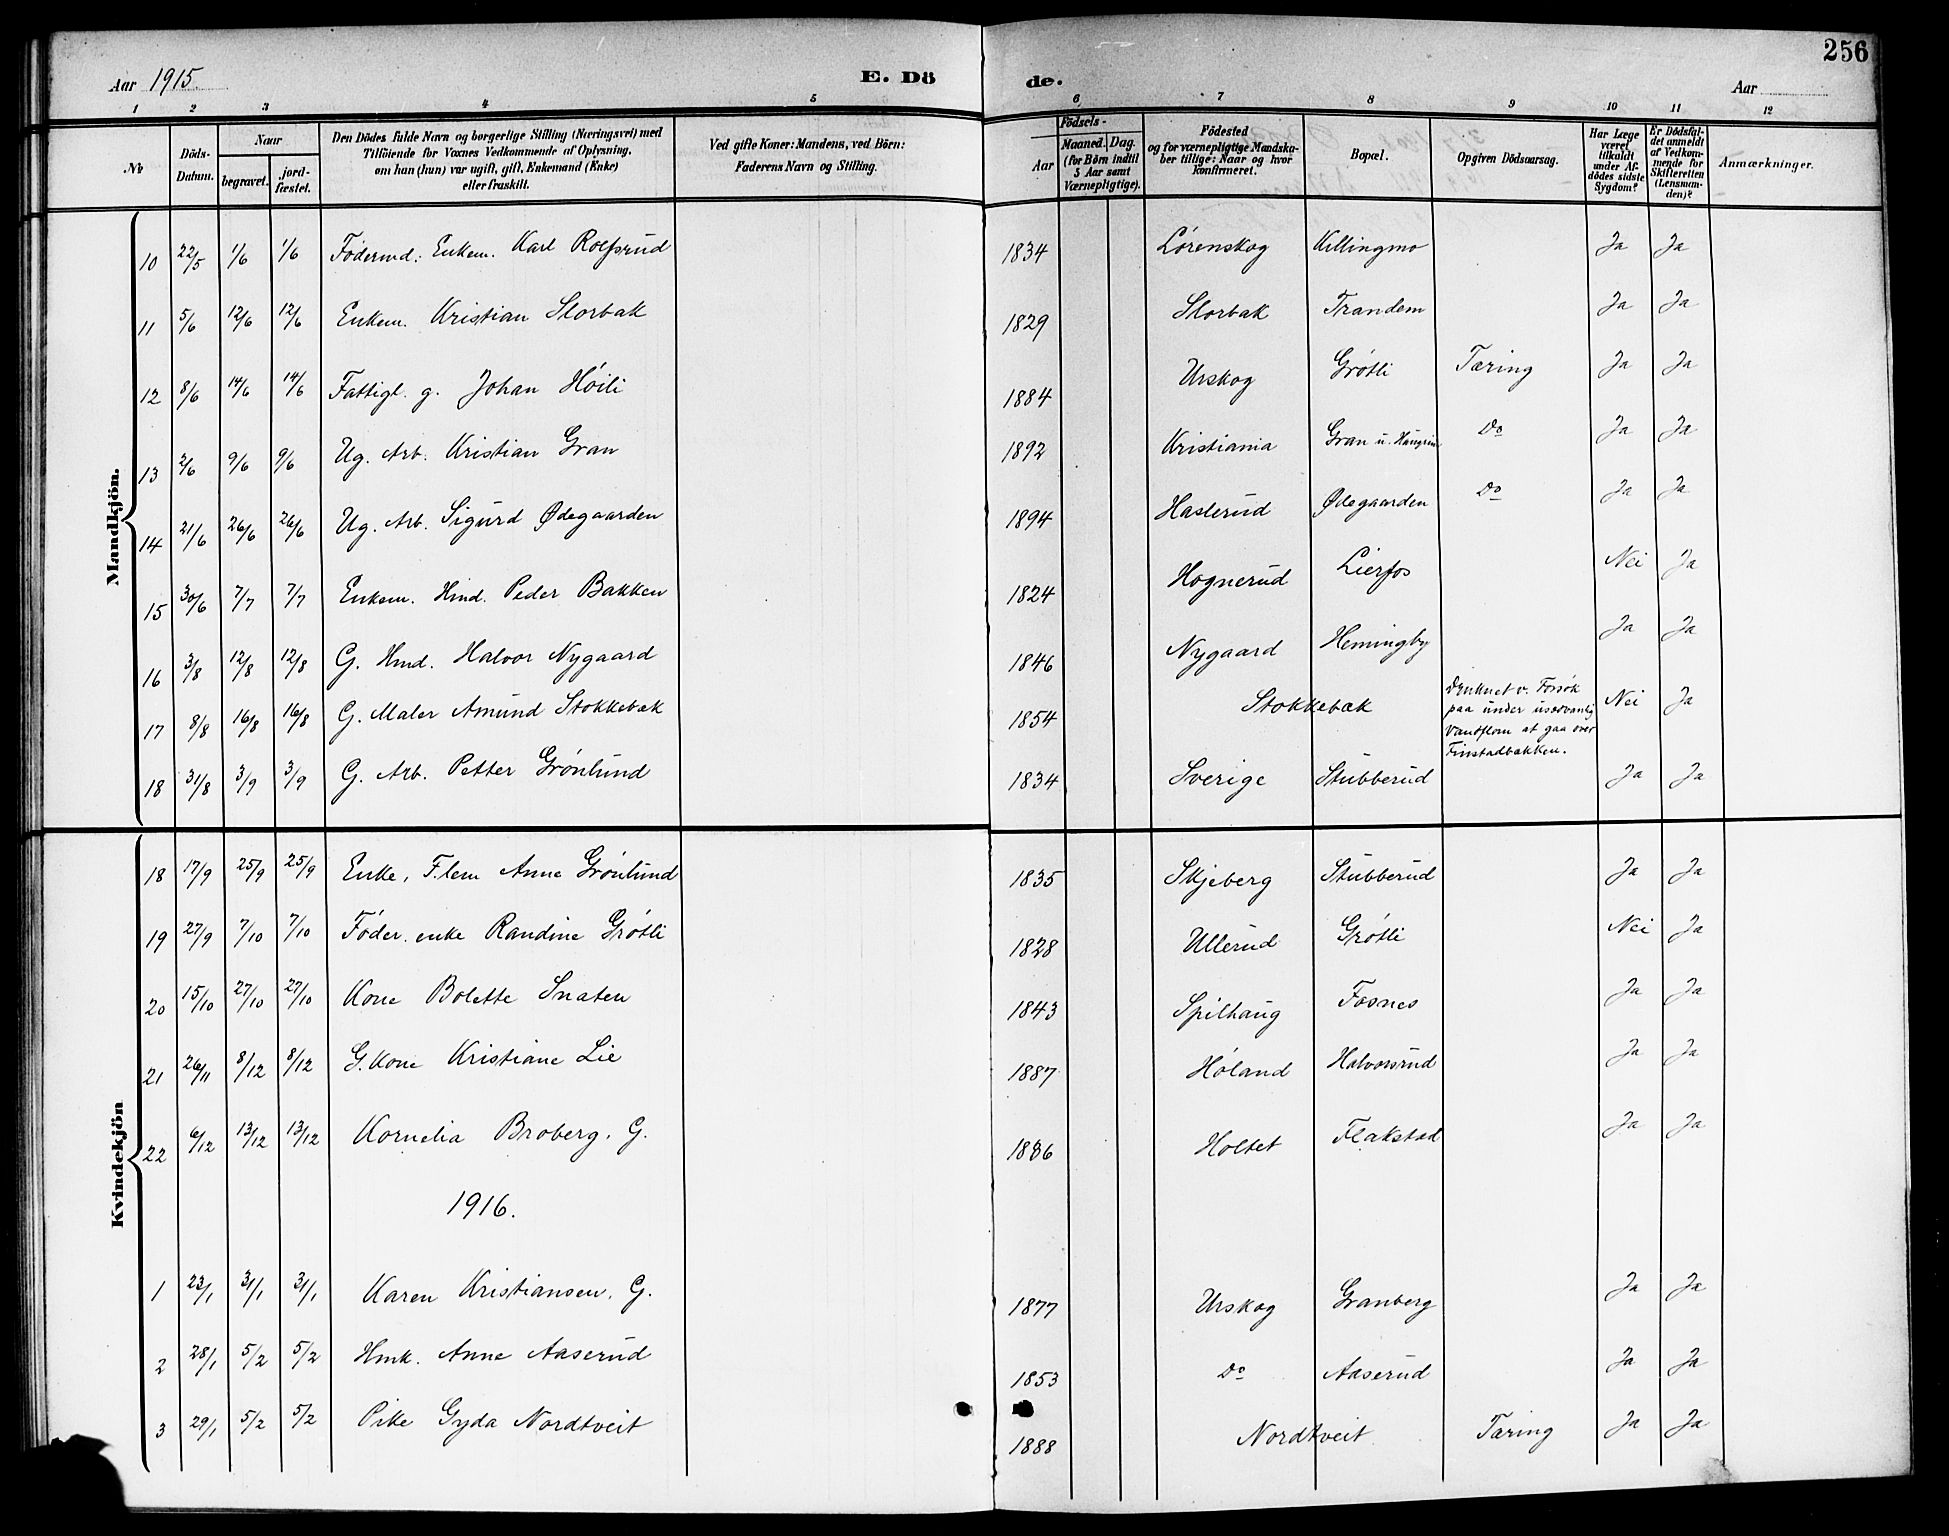 256
Aar 1915. E. Dö de. Aar
1 2 3 4 5 6 7 8 9 10 11 12
№
Döds-Datum.
Naar
begravet.
jord-fæstet.
Den Dödes fulde Navn og borgerlige Stilling (Næringsvei) med
Tilföiende for Voxnes Vedkommende af Oplysning,
om han (hun) var ugift, gift, Enkemand (Enke)
eller fraskilt.
Ved gifte Koner: Mandens, ved Börn:
Faderens Navn og Stilling.
Födsels-
Aar
Maaned. Dag.
(for Börn indtil
5 Aar samt
Værnepligtige).
Födested
og for værnepligtige Mandska-
ber tillige: Naar og hvor
konfirmeret.
Bopæl.
Opgiven Dödsaarsag.
Har Læge
været
tilkaldt
under Af-
dödes sidste
Sygdom?
Er Dödsfal-
det anmeldt
af Vedkom-
mende for
Skifteretten
(Lensman-
den)?
Anmærkninger.
Mandkjön.
10 22/5 1/6 1/6 Fødermd: Enkem. Karl Rolfsrud 1834 Lørenskog Killingmo Ja Ja
11 5/6 12/6 12/6 Enkem. Kristian Storbak 1829 Storbak Trandem Ja Ja
12 8/6 14/6 14/6 Fattigl. g. Johan Høili 1884 Urskog Grøtli Tæring Ja Ja
13 2/6 9/6 9/6 Ug. Arb. Kristian Gran 1892 Kristiania Gran u. Haugrim Do Ja Ja
14 21/6 26/6 26/6 Ug. Arb. Sigurd Ødegaarden 1894 Haslerud Ødegaarden Do Ja Ja
15 30/6 7/7 7/7 Enkem. Hmd. Peder Bakken 1824 Hognerud Lierfos Nei Ja
16 3/8 12/8 12/8 G. Hmd. Halvor Nygaard 1846 Nygaard Hemingby Ja Ja
17 8/8 16/8 16/8 G. Maler Amund Stokkebæk 1854 Stokkebæk Druknet v. Forsøk
paa under usedvanlig
Vandflom at gaa over
Finstadbækken. Nei Ja
18 31/8 3/9 3/9 G. Arb. Petter Grønlund 1834 Sverige Stubberud Ja Ja
Kvindekjön
18 17/9 25/9 25/9 Enke, F.lem Anne Grønlund 1835 Skjeberg Stubberud Ja Ja
19 27/9 7/10 7/10 Føder. enke Randine Grøtli 1828 Ullerud Grøtli Nei Ja
20 15/10 27/10 27/10 Kone Bolette Snaten 1843 Spilhaug Fosnes Ja Ja
21 26/11 8/12 8/12 G. Kone Kristiane Lie 1887 Høland Halvorsrud Ja Ja
22 6/12 13/12 13/12 Kornelia Broberg. G. 1886 Holtet Flakstad Ja Ja
1916.
1 23/1 31/1 31/1 Karen Kristiansen. G. 1877 Urskog Granberg Ja Ja
2 28/1 5/2 5/2 Hmk. Anne Aaserud 1853 Do Aaserud Ja Ja
3 29/1 5/2 5/2 Pike Gyda Nordtveit 1888 Nordtveit Tæring Ja Ja